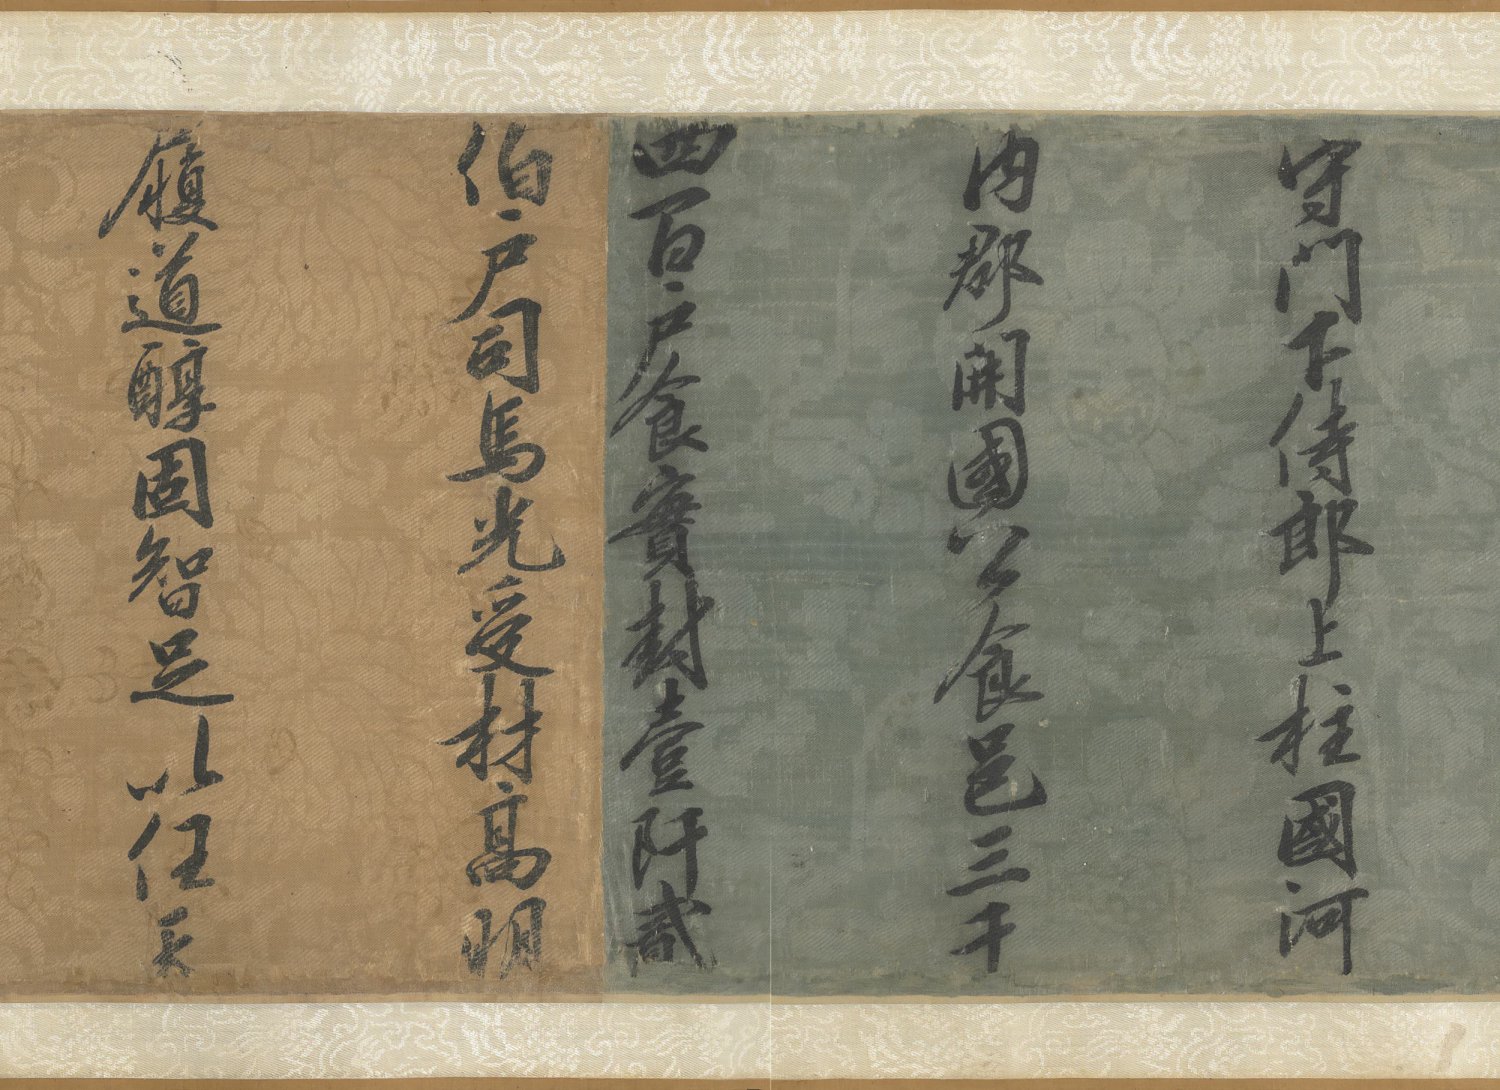 守門下侍郎上柱國河
內郡開國公食邑三千
四百戶食實封壹阡貳
伯戶司馬光受材高明
履道醇固智足以任天